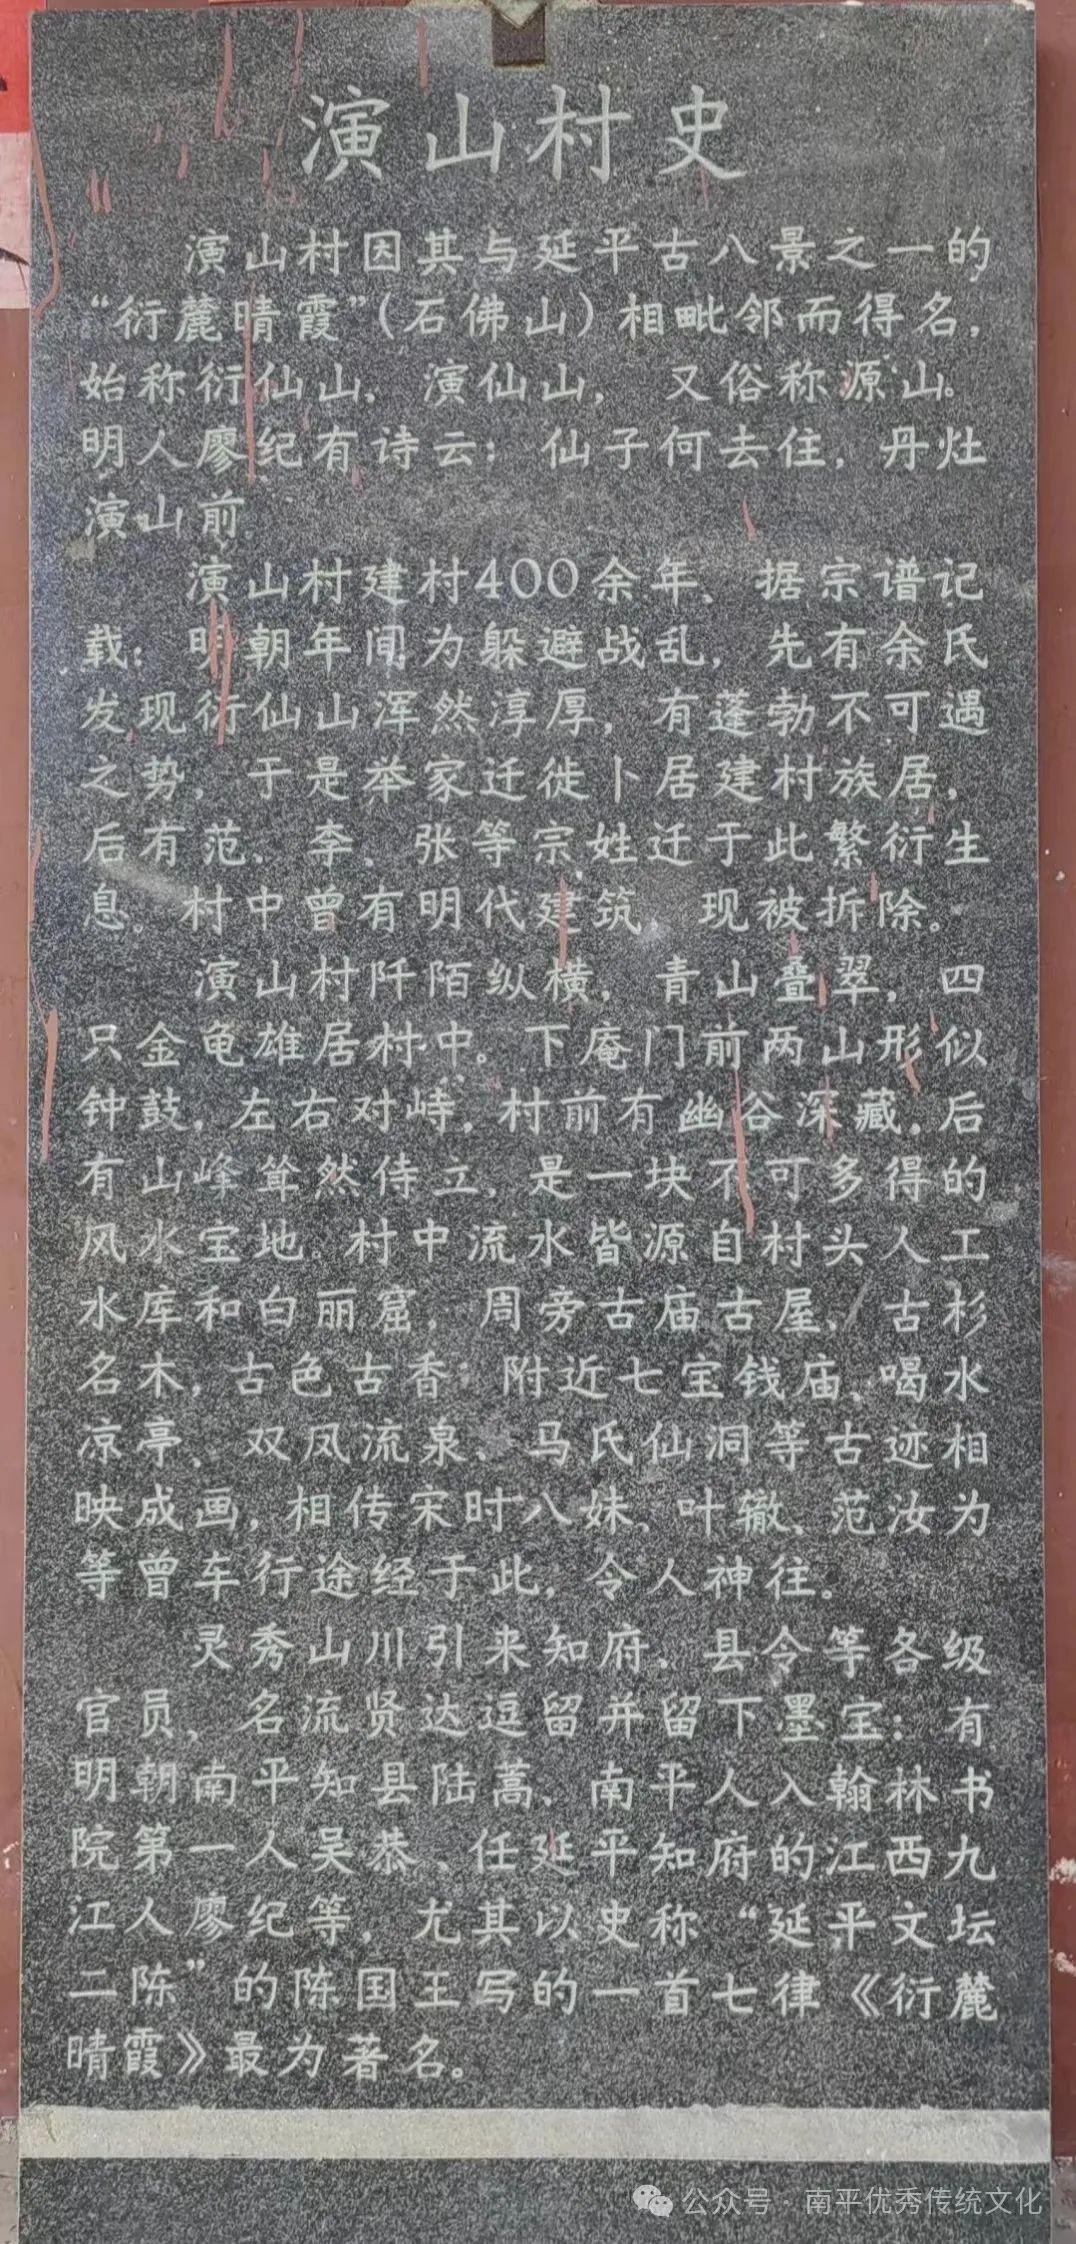 演山村史
演山村因其与延平古八景之一的
“衍麓晴霞”（石佛山）相毗邻而得名，
始称衍仙山、演仙山，又俗称源山。
明人廖纪有诗云：仙子何去住，丹灶
演山前。
演山村建村400余年、据宗谱记
载：明朝年间为躲避战乱，先有余氏
发现衍仙山浑然淳厚，有蓬勃不可遇
之势，于是举家迁徙卜居建村族居，
后有范、李、张等宗姓迁于此繁衍生
息。村中曾有明代建筑，现被拆除。
演山村阡陌纵横，青山叠翠，四
只金龟雄居村中。下庵门前两山形似
钟鼓，左右对峙，村前有幽谷深藏，后
有山峰耸然侍立，是一块不可多得的
风水宝地。村中流水皆源自村头人工
水库和白丽窟，周旁古庙古屋、古杉
名木，古色古香；附近七宝钱庙、喝水
凉亭、双凤流泉、马氏仙洞等古迹相
映成画，相传宋时八妹、叶辙、范汝为
等曾车行途经于此，令人神往。
灵秀山川引来知府、县令等各级
官员，名流贤达逗留并留下墨宝：有
明朝南平知县陆蒿、南平人入翰林书
院第一人吴恭、任延平知府的江西九
江人廖纪等，尤其以史称“延平文坛
二陈”的陈国王写的一首七律《衍麓
晴霞》最为著名。
公众号·南平优秀传统文化